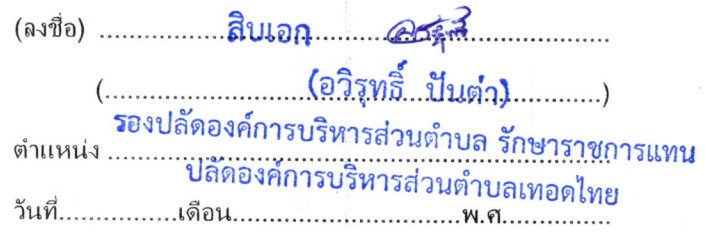 (ลงชื่อ) ............สิบเอก............
(............(อวิรุทธิ์ ปันต่า)............)
ตำแหน่ง รองปลัดองค์การบริหารส่วนตำบล รักษาราชการแทน
ปลัดองค์การบริหารส่วนตำบลเทอดไทย
วันที่................เดือน................................พ.ศ................